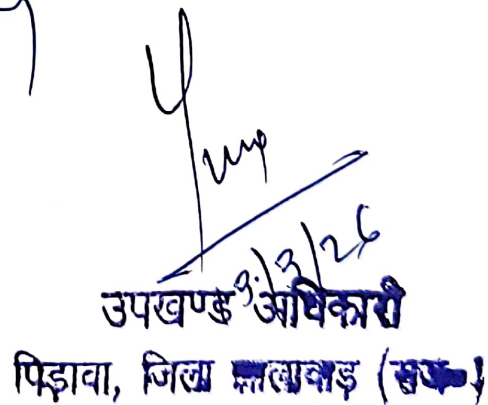 3/3/26
उपखण्ड अधिकारी
पिड़ावा, जिला झालावाड़ (राज०)